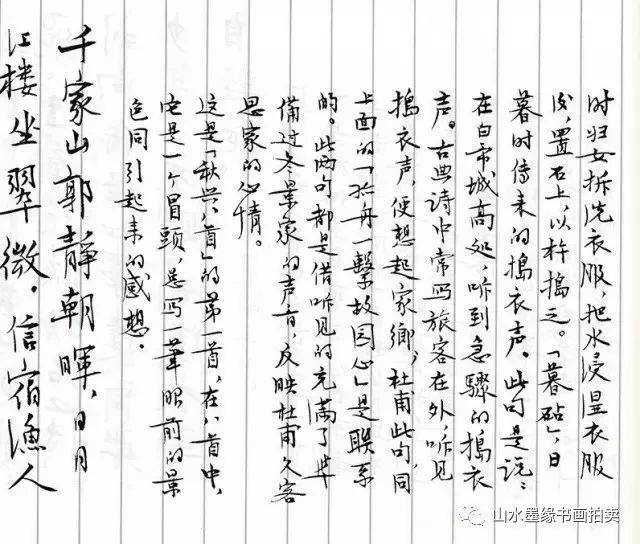 时妇女拆洗衣服，把水浸湿衣服
后，置石上，以杵搗之。「暮砧」，日
暮时传来的搗衣声。此句是说：
在白帝城高处，听到急骤的搗衣
声。古典诗中常写旅客在外，听见
搗衣声，便想起家乡，杜甫此句，同
上面的「孤舟一繫故园心」是联系
的。此两句都是借听见的充满了准
备过冬景象的声音，反映杜甫久客
思家的心情。
这是「秋兴八首」的第一首，在八首中，
它是一个冒头，总写一笔眼前的景
色同引起来的感想。
千家山郭靜朝暉，日月
江楼坐翠微。信宿漁人
山水墨缘书画拍卖